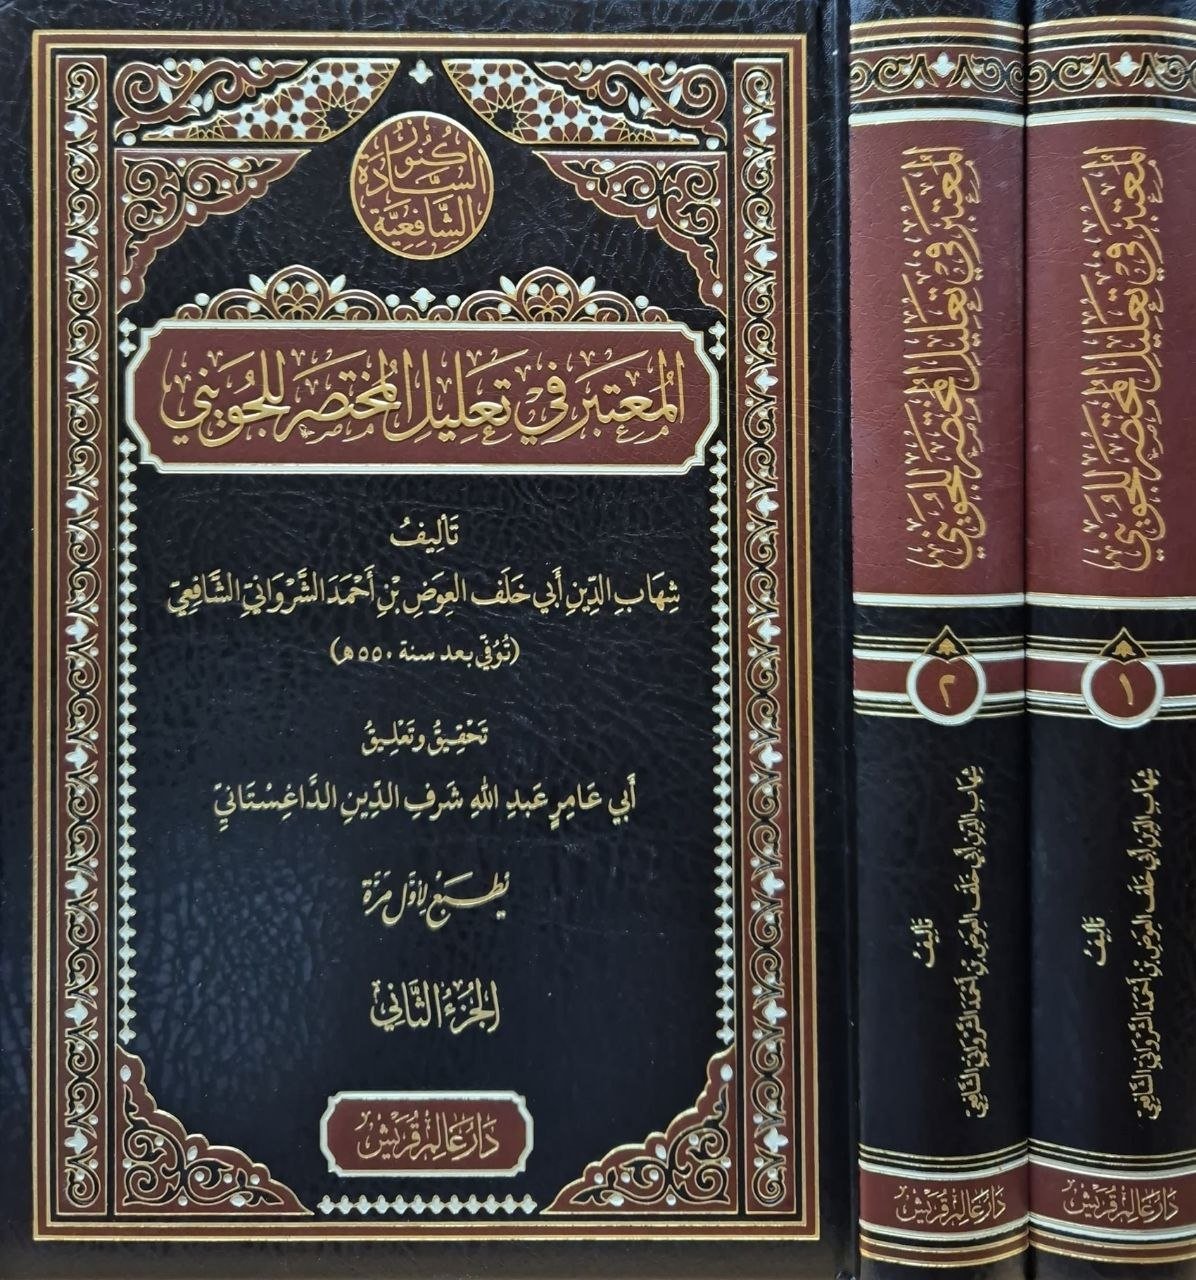 كُنُوزُ
السَّادَةِ
الشَّافِعِيَّةِ
المُعْتَبَر فِي تَعْلِيلِ المُخْتَصَر لِلجُوَيْنِي
تَأْلِيفُ
شِهَابِ الدِّينِ أَبِي خَلَف العِوَض بْنِ أَحْمَدَ الشَّرْوَانِيّ الشَّافِعِيّ
(تُوُفِّي بعد سنة ٥٥٠هـ)
تَحْقِيقُ وتَعْلِيقُ
أَبِي عَامِرٍ عَبدِ اللهِ شَرَفِ الدِّينِ الدَّاغِسْتَانِيِّ
يُطبَعُ لِأَوَّلِ مَرَّة
الجُزءُ الثَّانِي
دَارُ عَالِم قُرَيْش
المُعْتَبَر فِي تَعْلِيلِ المُخْتَصَر لِلجُوَيْنِي
٢
تَأْلِيفُ
شِهَابِ الدِّينِ أَبِي خَلَف العِوَض بْنِ أَحْمَدَ الشَّرْوَانِيّ الشَّافِعِيّ
دَارُ عَالِم قُرَيْش
المُعْتَبَر فِي تَعْلِيلِ المُخْتَصَر لِلجُوَيْنِي
١
تَأْلِيفُ
شِهَابِ الدِّينِ أَبِي خَلَف العِوَض بْنِ أَحْمَدَ الشَّرْوَانِيّ الشَّافِعِيّ
دَارُ عَالِم قُرَيْش